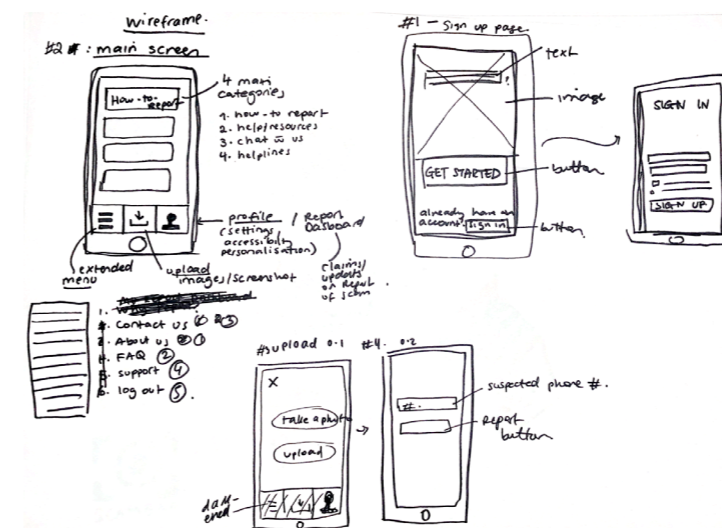 wireframe.
#2 : main screen
How-to-
report
4 main
categories
1. how-to report
2. help/resources
3. chat w us
4. helplines
profile
(settings
accessibilty
personalisation)
/ Report
Dasboard
claims/
updats
on Report
of scam
extended
menu
upload
images/screenshot
1.
Contact us ③
About us ①
FAQ ②
5. support ④
6. log out ⑤
#1 - Sign up page.
text
image
GET STARTED
button
already have an
account?
sign in
button
SIGN IN
SIGN UP
#3 upload 0.1
X
take a photo
upload
dark-
ened
#4. 0.2
#.
suspected phone #.
report
button